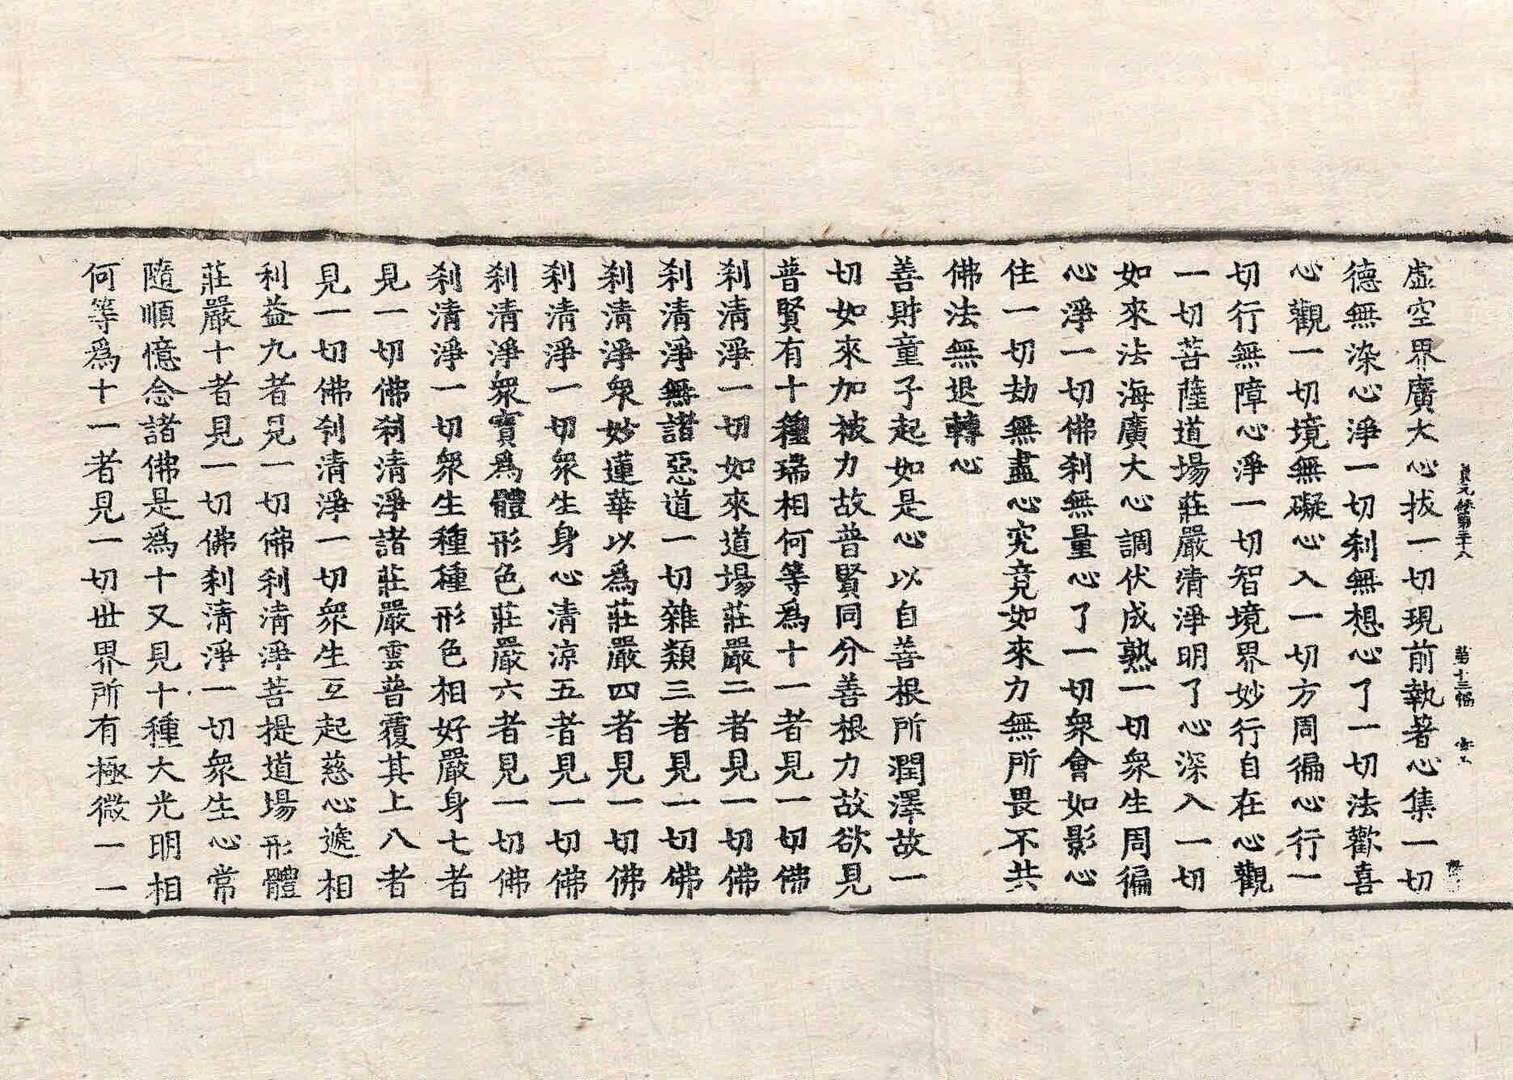 虛空界廣大心拔一切現前執著心集一切
德無染心淨一切刹無想心了一切法歡喜
心觀一切境無礙心入一切方周徧心行一
切行無障心淨一切智境界妙行自在心觀
一切菩薩道場莊嚴清淨明了心深入一切
如來法海廣大心調伏成熟一切衆生周徧
心淨一切佛刹無量心了一切衆會如影心
住一切劫無盡心究竟如來力無所畏不共
佛法無退轉心
善財童子起如是心以自善根所潤澤故一
切如來加被力故普賢同分善根力故欲見
普賢有十種瑞相何等爲十一者見一切佛
刹清淨一切如來道場莊嚴二者見一切佛
刹清淨無諸惡道一切雜類三者見一切佛
刹清淨衆妙蓮華以爲莊嚴四者見一切佛
刹清淨一切衆生身心清涼五者見一切佛
刹清淨衆寶爲體形色莊嚴六者見一切佛
刹清淨一切衆生種種形色相好嚴身七者
見一切佛刹清淨諸莊嚴雲普覆其上八者
見一切佛刹清淨一切衆生互起慈心遞相
利益九者見一切佛刹清淨菩提道場形體
莊嚴十者見一切佛刹清淨一切衆生心常
隨順憶念諸佛是爲十又見十種大光明相
何等爲十一者見一切世界所有極微一一